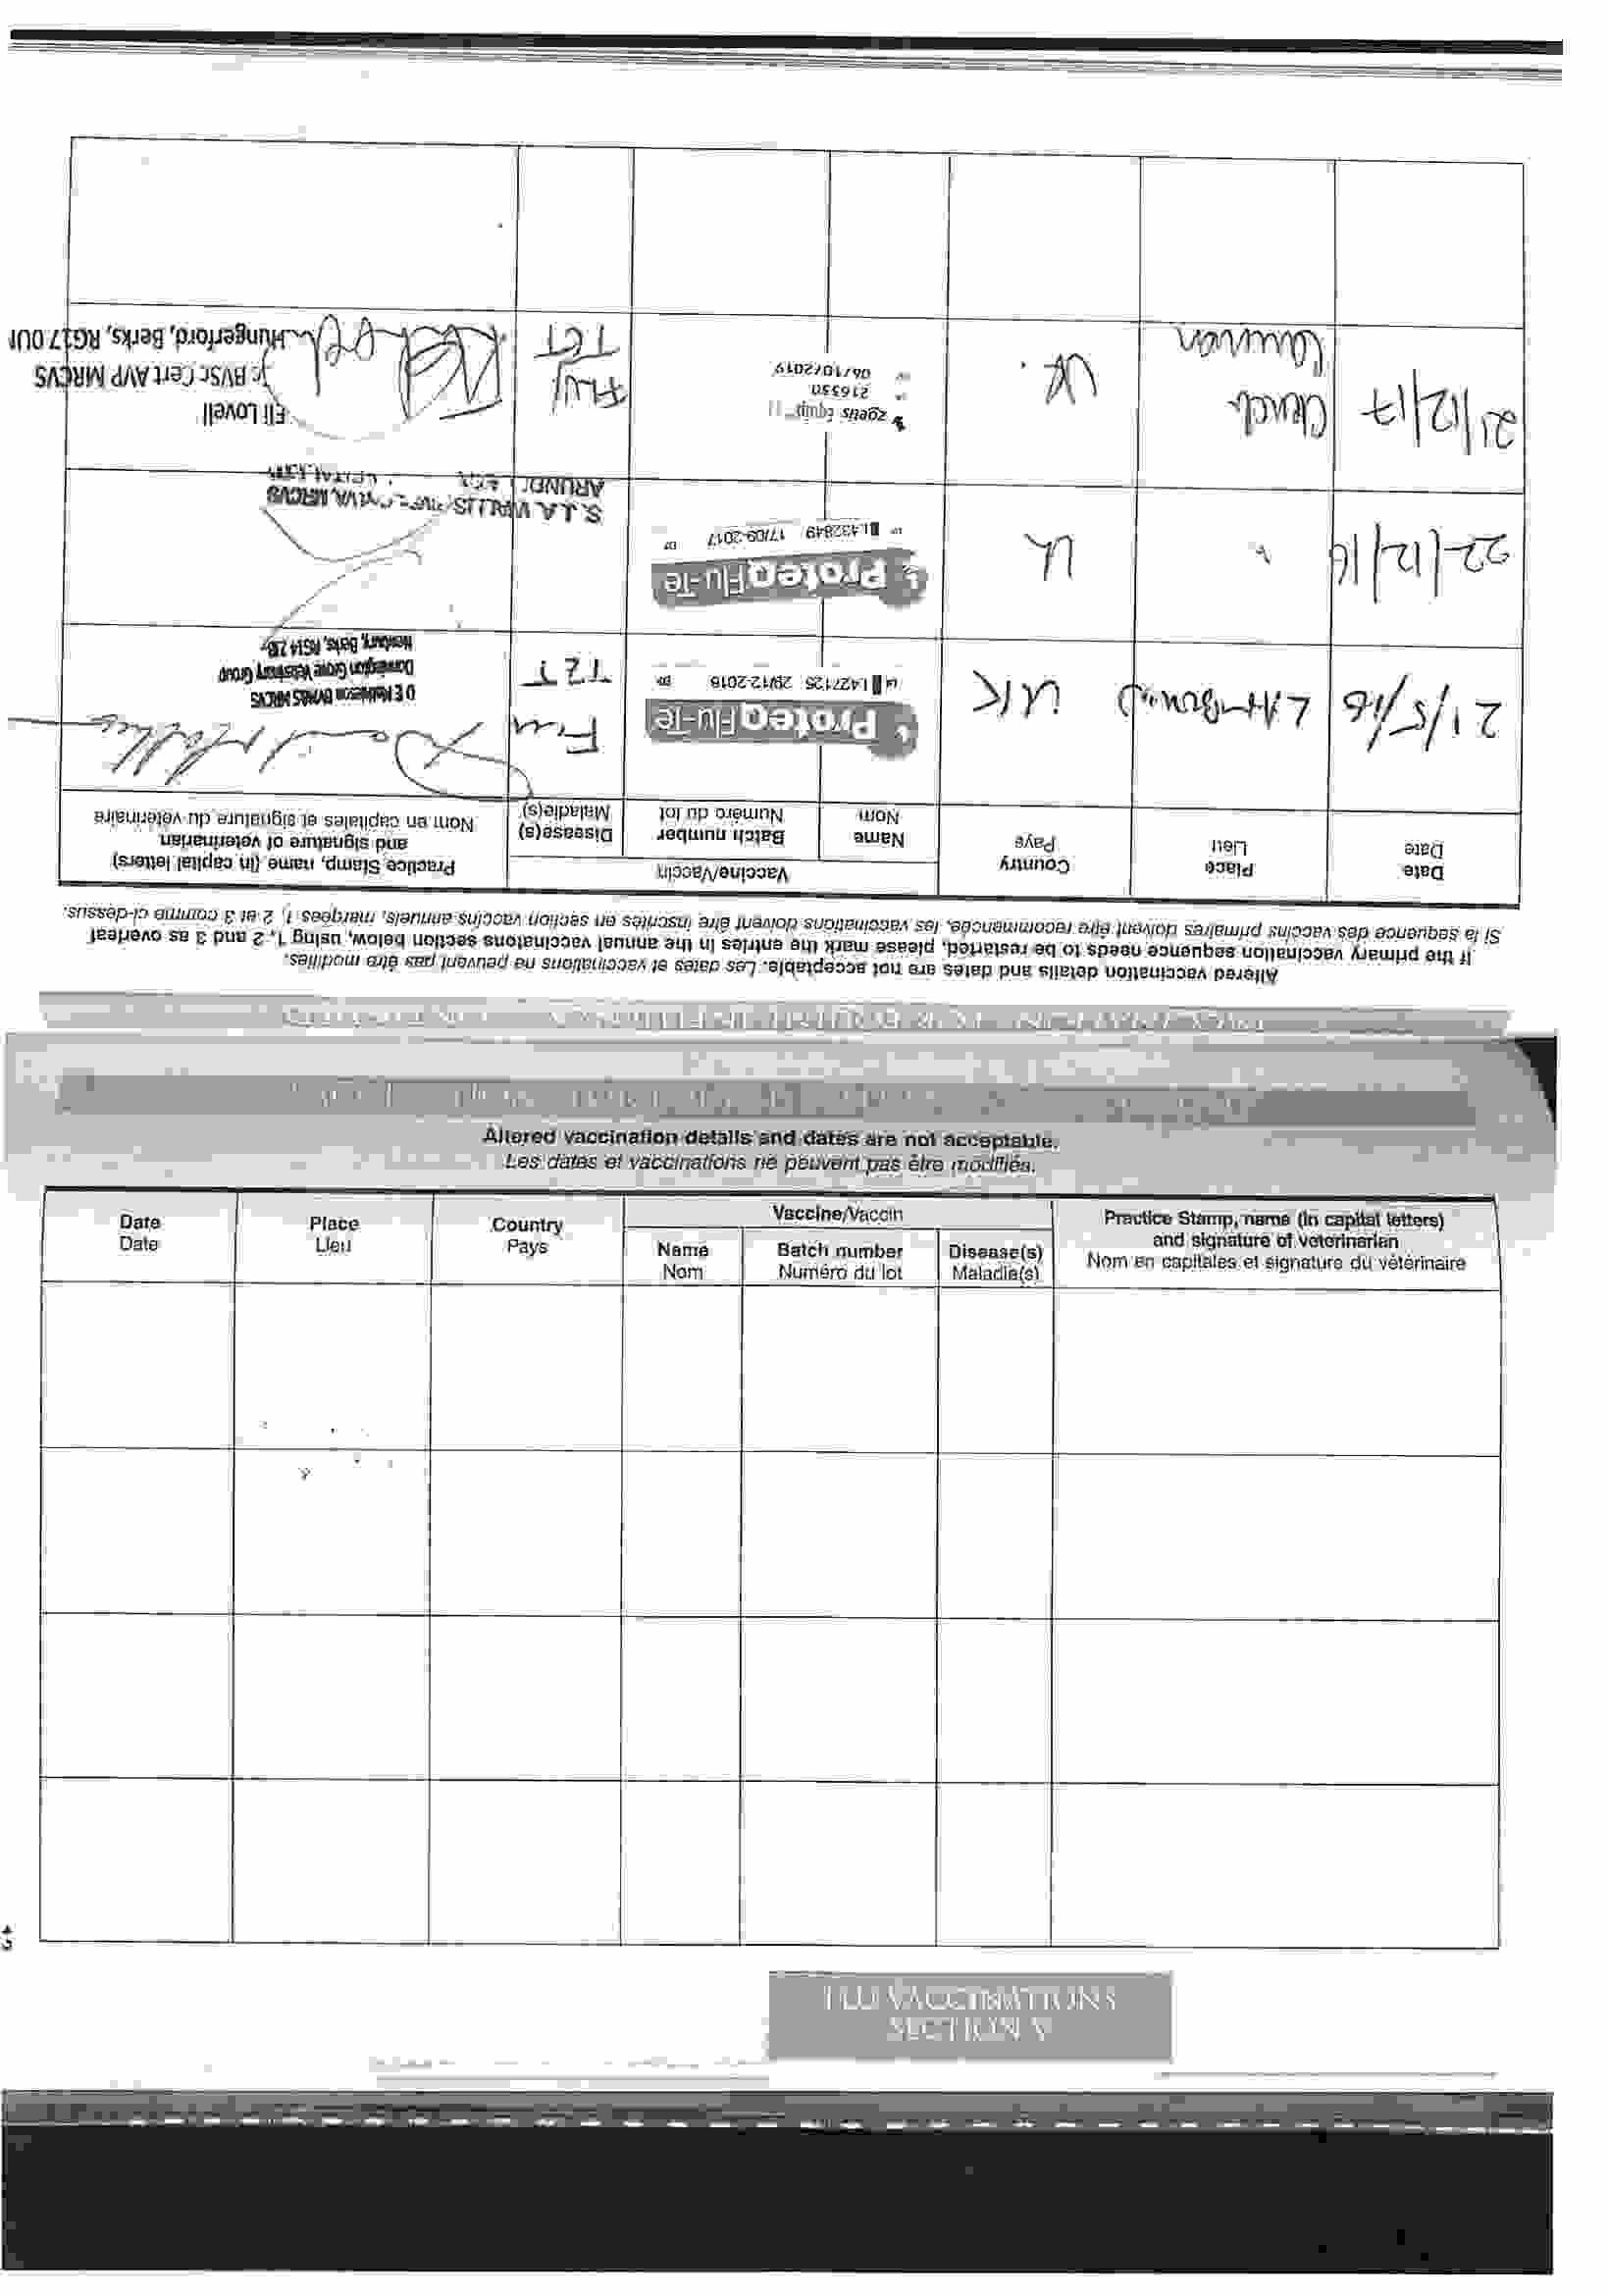 Altered vaccination details and dates are not acceptable. Les dates et vaccinations ne peuvent pas être modifiés.
If the primary vaccination sequence needs to be restarted, please mark the entries in the annual vaccinations section below, using 1, 2 and 3 as overleaf
Si la sequence des vaccins primaires doivent être recommancés, les vaccinations doivent être inscrites en section vaccins annuels, margées 1, 2 et 3 comme ci-dessus.
Date
Date
Place
Lieu
Country
Pays
Vaccine/Vaccin
Name
Nom
Batch number
Numéro du lot
Disease(s)
Maladie(s)
Practice Stamp, name (in capital letters)
and signature of veterinarian
Nom en capitales et signature du vétérinaire
21/5/16 LAMBOURN UK
ProteqFlu-Te
L427125 29/12-2016
Flu
TET
Donnington Grove Veterinary Group
Newbury, Berks, RG14
22/12/16 " UK
ProteqFlu-Te
L432849 17/09-2017
S.J.A. WALLIS MRCVS
21/12/17 UK.
zoetis equip
216550
06/10/2019
FLU/
TET
Eli Lovell
BVSc Cert AVP MRCVS
Hungerford, Berks, RG17 0U
Altered vaccination details and dates are not acceptable.
Les dates et vaccinations ne peuvent pas être modifiés.
Date
Date
Place
Lieu
Country
Pays
Vaccine/Vaccin
Name
Nom
Batch number
Numéro du lot
Disease(s)
Maladie(s)
Practice Stamp, name (in capital letters)
and signature of veterinarian
Nom en capitales et signature du vétérinaire
FLU VACCINATIONS
SECTION V